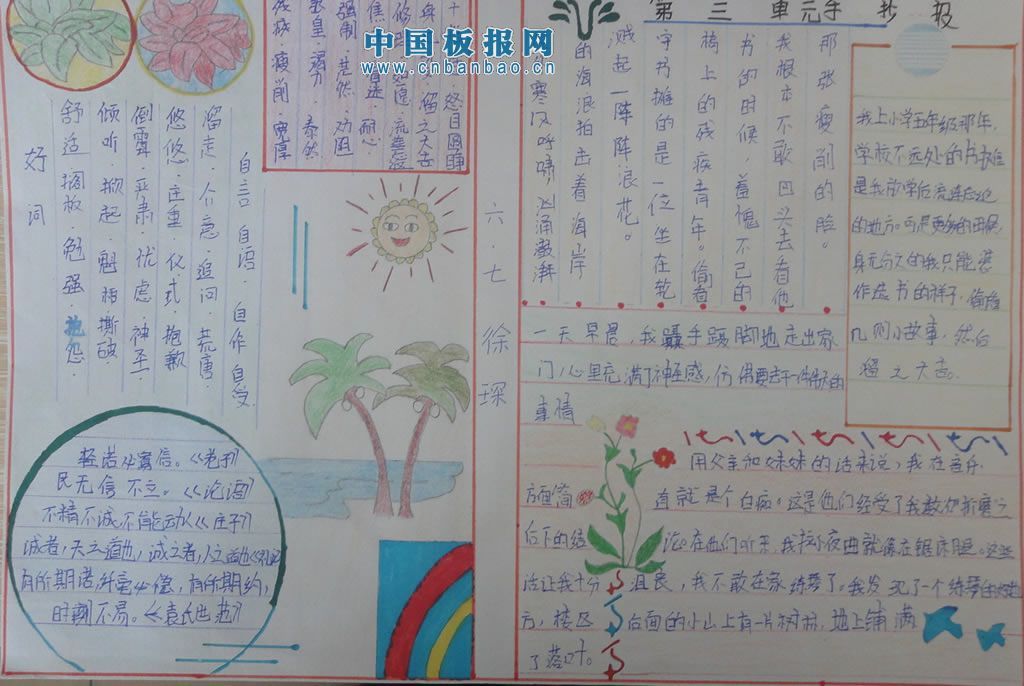 第三单元手抄报
中国板报网
www.cnbanbao.cn
好词
舒适 搁板 勉强 抱怨
倾听 掀起 魁梧 撕破
倒霉 严肃 忧虑 神圣
悠悠 庄重 仪式 抱歉
溜走 介意 追问 荒唐
自言自语 自作自受
残疾 瘦削 宽厚
教皇 竭力 泰然
强制 茫然 劝阻
耐心
溜之大吉
怒目圆睁
六·七 徐琛
轻诺必寡信。《老子》
民无信不立。《论语》
不精不诚,不能动人《庄子》
诚者,天之道也,诚之者,人之道也
有所期诺,纤毫必偿,有所期约,
时刻不易。《袁氏世范》
那张瘦削的脸。
我根本不敢回头去看他
书的时候,羞愧不已的
椅上的残疾青年。偷看
守书摊的是一位坐在轮
溅起一阵阵浪花。
的海浪拍击着海岸
寒风呼啸,汹涌澎湃
我上小学五年级那年,
学校不远处的书摊
是我放学后流连忘返
的地方。可是更多的时候,
身无分文的我只能装
作选书的样子,偷看
几则小故事,然后
溜之大吉。
一天早晨,我蹑手蹑脚地走出家
门,心里充满了神圣感,仿佛要去干一件伟大的
事情
用父亲和妹妹的话来说,我在音乐
方面简直就是个白痴。这是他们经受了我数次折磨之
后下的结论。在他们听来,我拉小夜曲就像在锯床腿。这些
话让我十分沮丧,我不敢在家练琴了。我发现了一个练琴的好地
方,楼区后面的小山上有一片树林,地上铺满
了落叶。